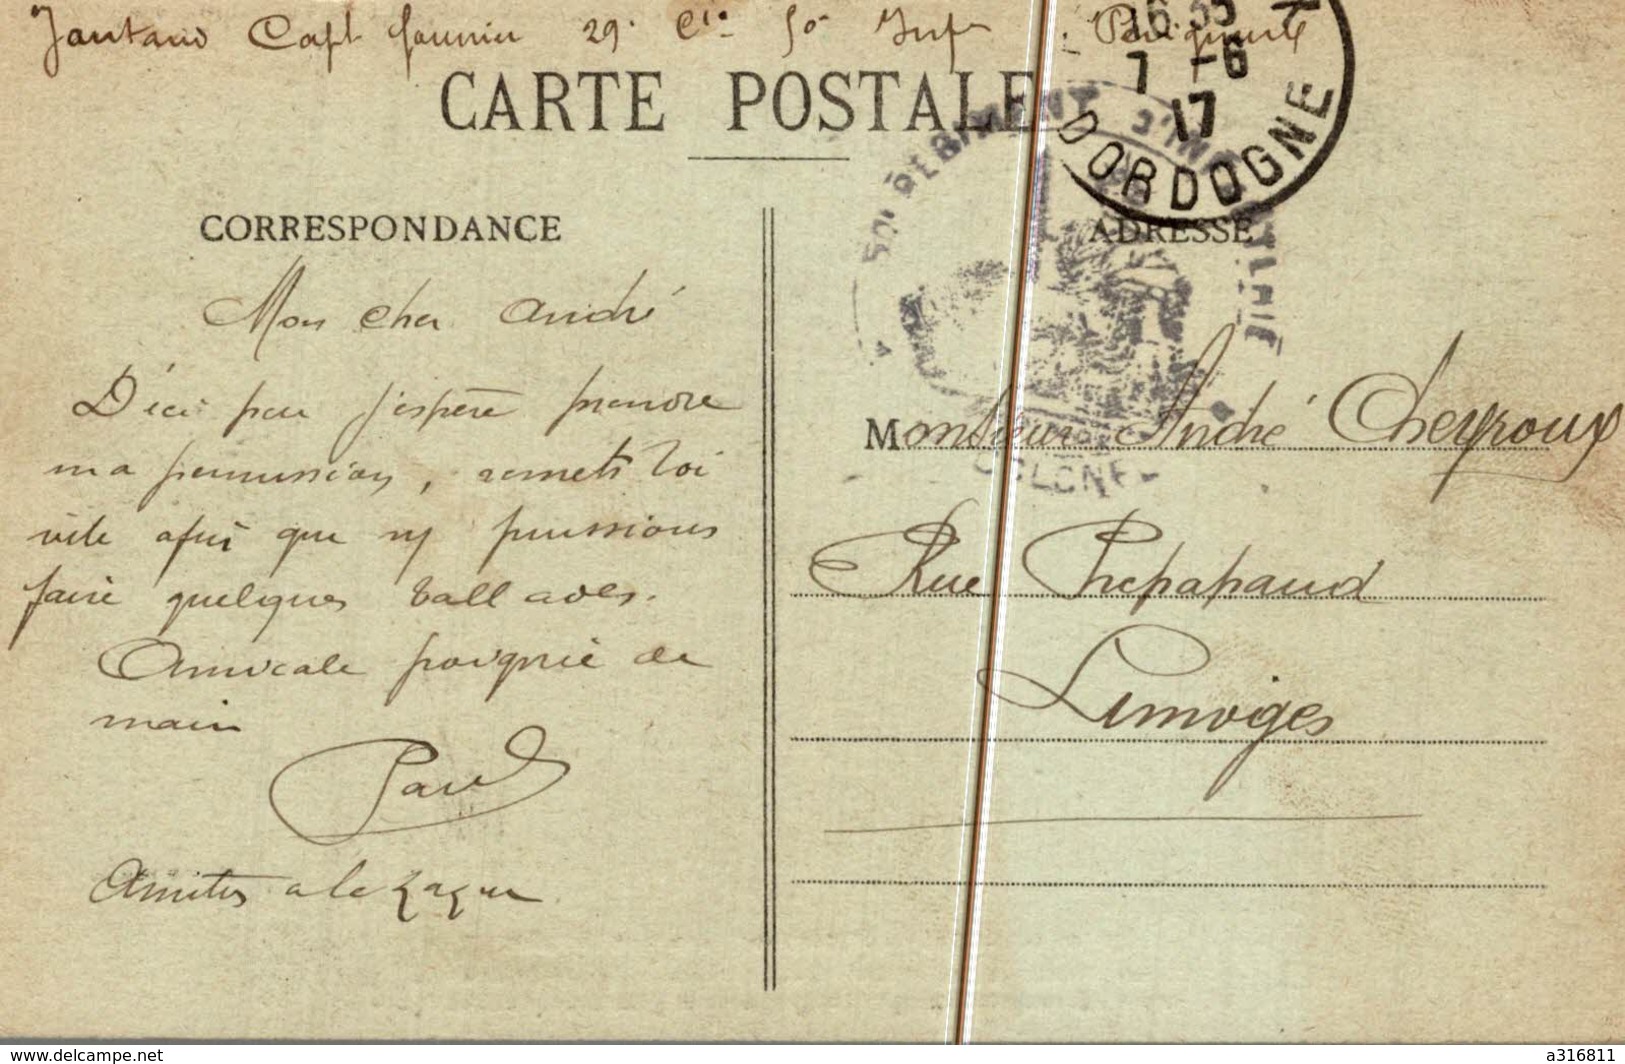 Jantaud Capl fourrier 29e Cie 50e Inf. Périgueux
CARTE POSTALE
16 35
7 -6
17
DORDOGNE
50e RÉGIMENT D'INFANTERIE
COLONEL
CORRESPONDANCE
ADRESSE
Mon cher André
D'ici peu j'espère prendre
ma permission, remets toi
vite afin que ns puissions
faire quelques ballades.
Amicale poignée de
main
Paul
Amitiés a la
Monsieur André Cheyroux
Rue Prépapaud
Limoges
www.delcampe.net
a316811